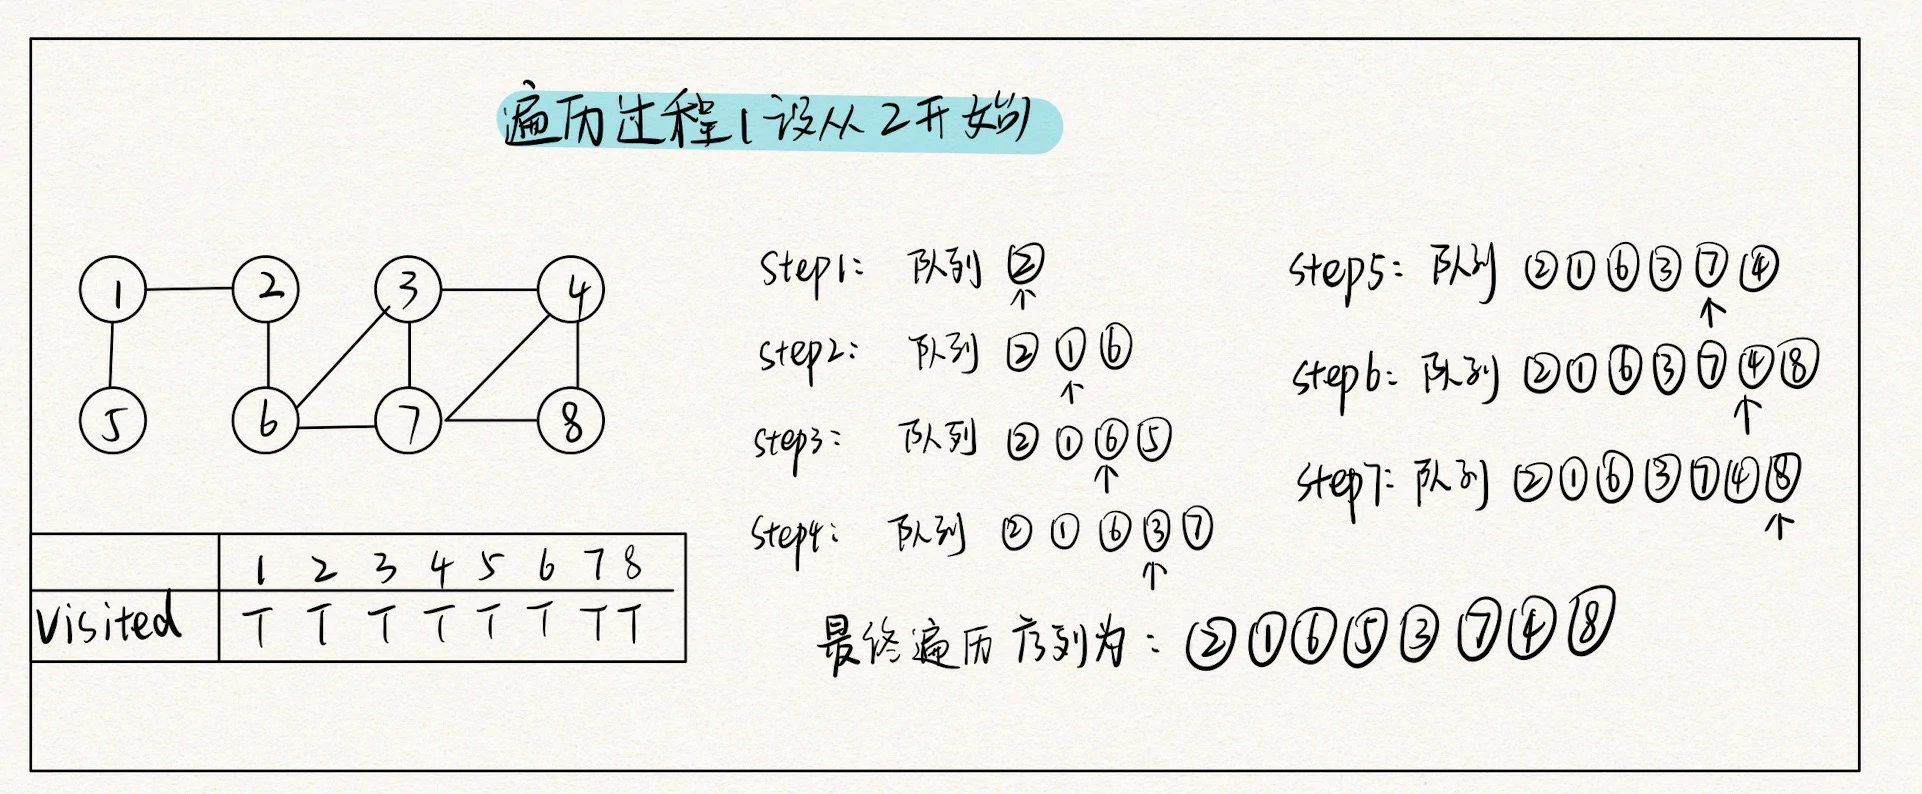 遍历过程(设从2开始)
1 2 3 4
5 6 7 8
1 2 3 4 5 6 7 8
Visited T T T T T T T T
Step1: 队列 ②
step2: 队列 ② ① ⑥
step3: 队列 ② ① ⑥ ⑤
step4: 队列 ② ① ⑥ ③ ⑦
step5: 队列 ② ① ⑥ ③ ⑦ ④
step6: 队列 ② ① ⑥ ③ ⑦ ④ ⑧
step7: 队列 ② ① ⑥ ③ ⑦ ④ ⑧
最终遍历序列为: ② ① ⑥ ⑤ ③ ⑦ ④ ⑧